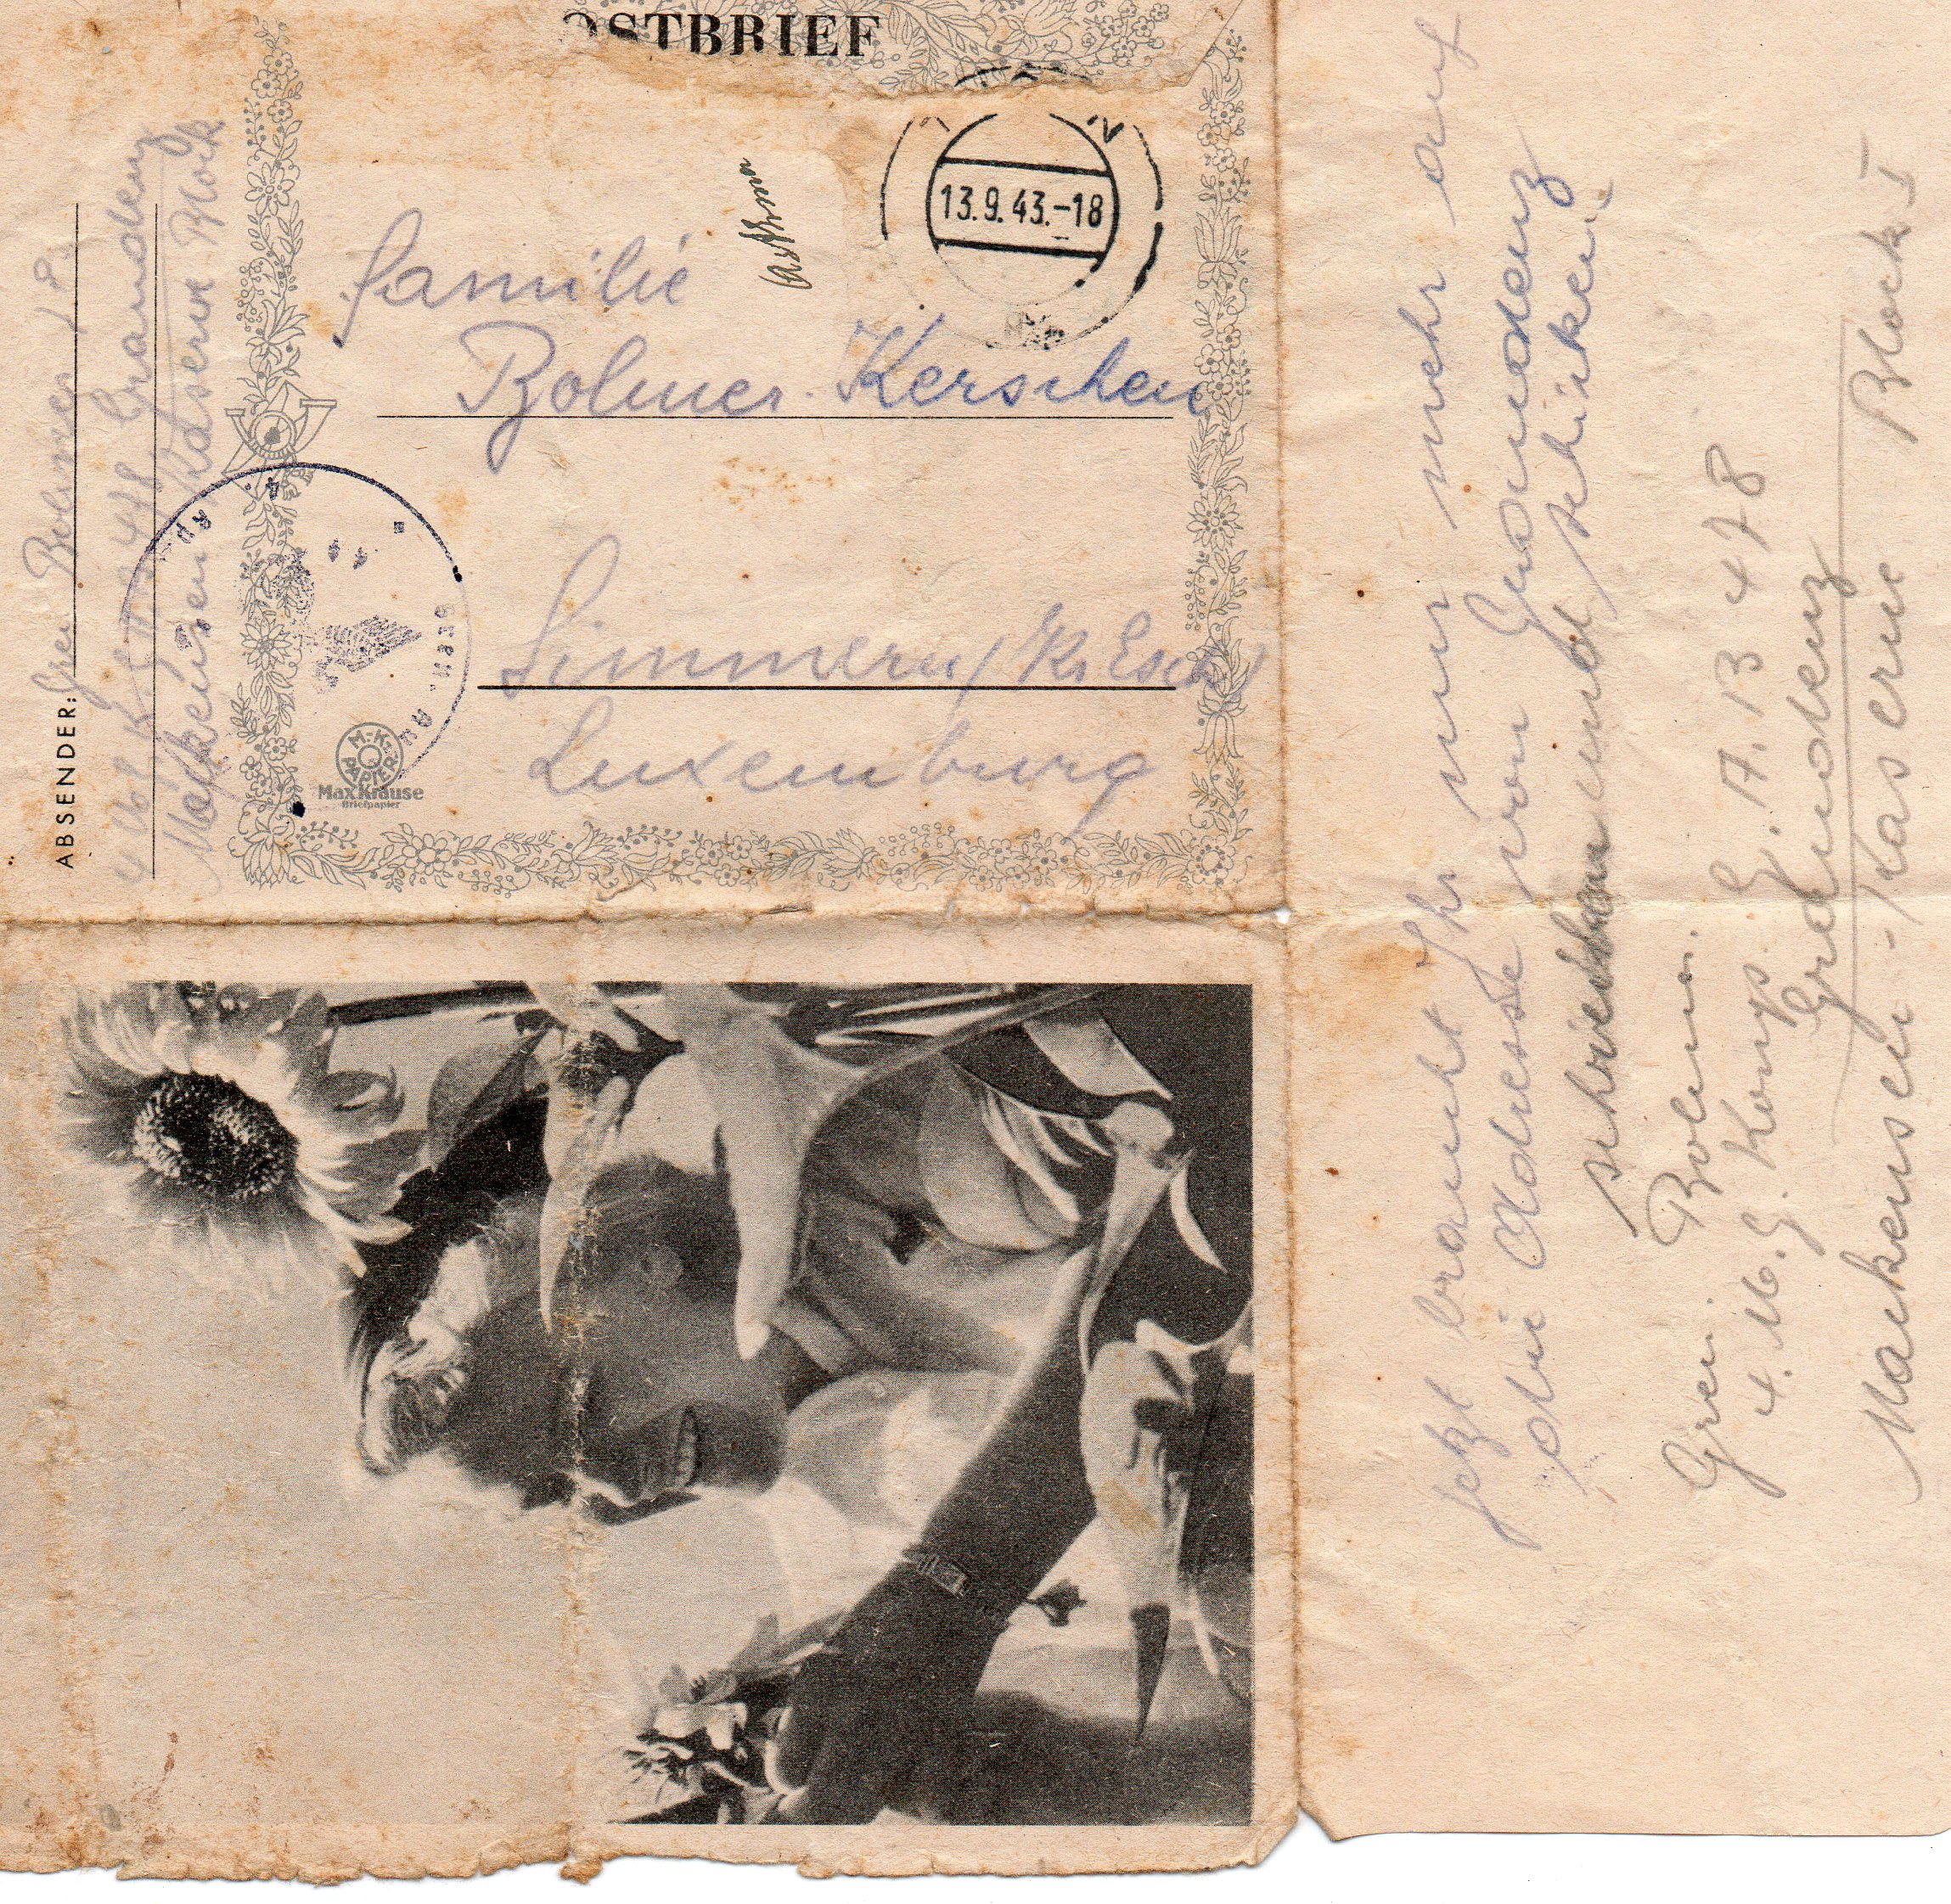 OSTBRIEF
13.9.43.-18
Familie
Bohmer. Kerschen
Simmern / Kr. Esch
Luxemburg
ABSENDER: Gren. Bohmer J. P.
4 M. K. G J B 478 Graudenz
Makensen Kaserne Block
M.-K.
PAPIER
Max Krause
Briefpapier
Jetzt braucht Ihr nur mehr auf
die Adresse von Graudenz
schreiben und schicken.
Gren. Bohm.
4. M. G. Komp. G. J. B 478
Graudenz
Mackensen-Kaserne Block I